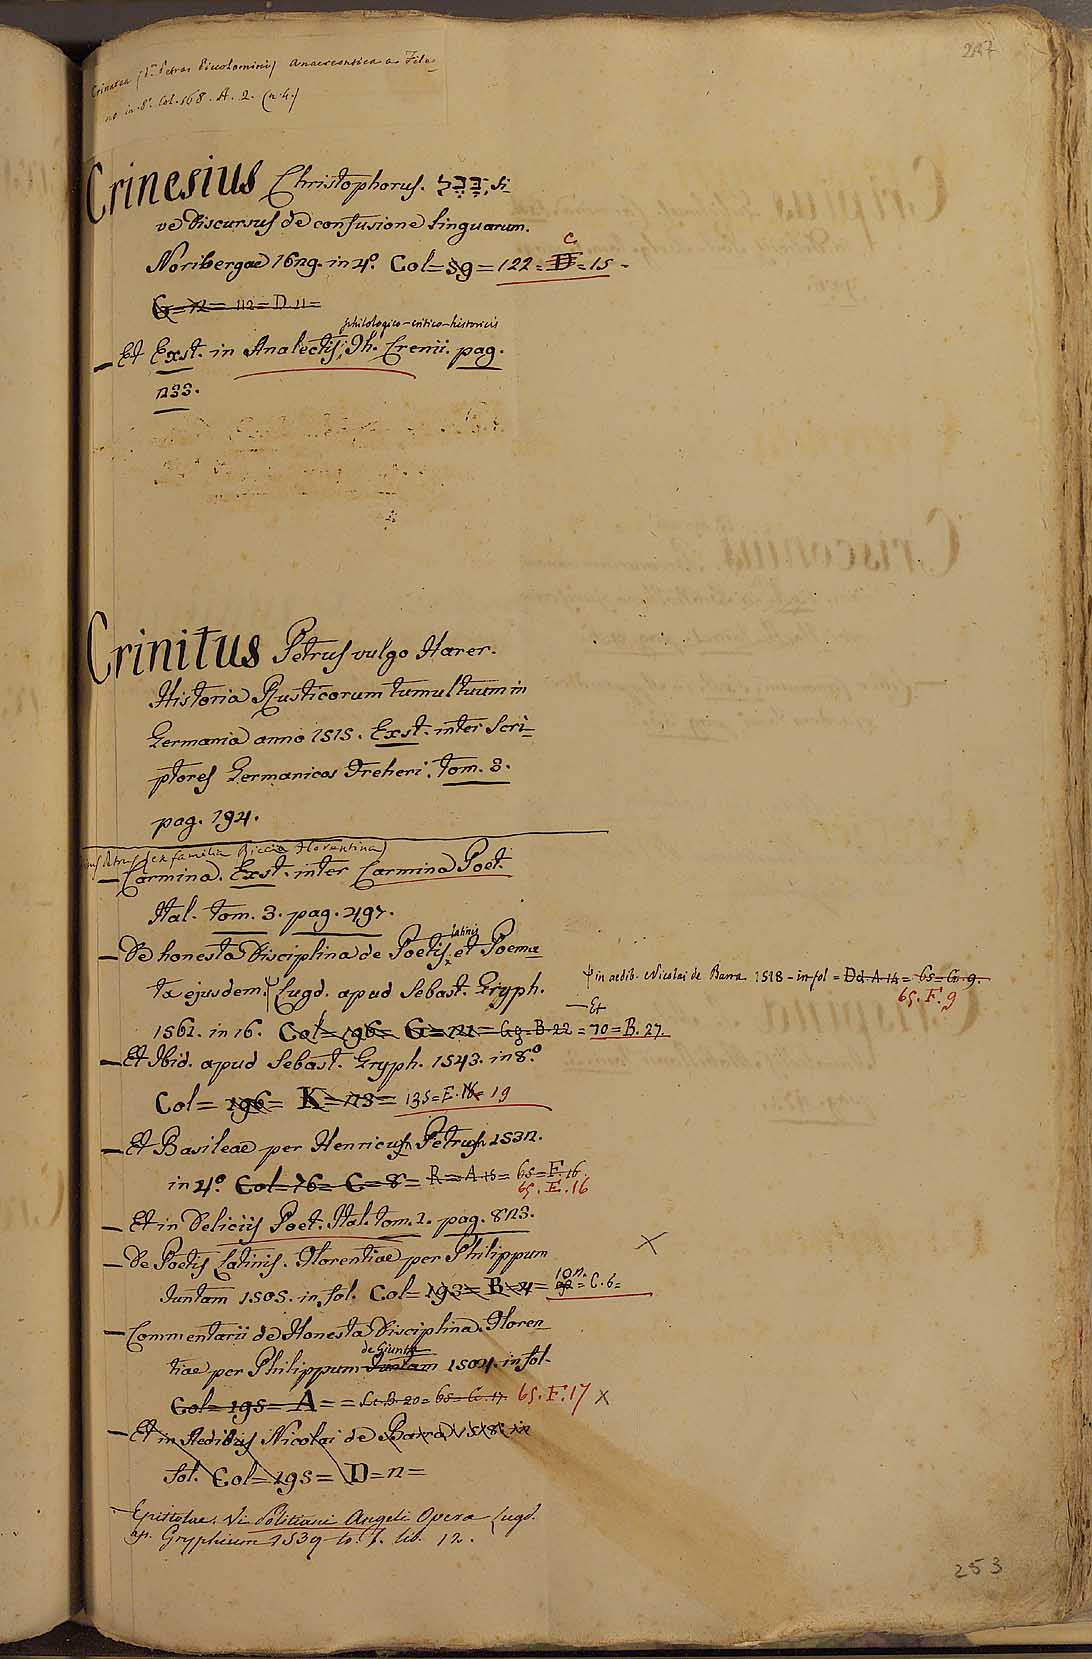 247
Crinatea (Petras Piccolomini) Anacreontica a File-
no in 8°. Col. 168. A. 2. (n. 4.)
Crinesius Christophorus. בָּבֶל, si-
ve Discursus de confusione linguarum.
Noribergae 1629. in 4°. Col = 59 = 122 = D C = 15 -
G = 72 = 112 = D. 11 =
philologico-critico-historicis
— Et Exst. in Analectis, Th. Crenii. pag.
233.
Crinitus Petrus vulgo Harer.
Historia Rusticorum tumultuum in
Germania anno 1515. Exst. inter Scri-
ptores Germanicos Freheri. tom. 3.
pag. 194.
Petrus (ex familia Riccia Florentina)
— Carmina. Exst. inter Carmina Poet.
Ital. tom. 3. pag. 497.
— De honesta Disciplina de Poetis latinis et Poema-
ta ejusdem. Lugd. apud Sebast. Gryph.
in aedib. Nicolai de Barra 1518 - in fol = Dd. A 14 = 65 = G. 9.
65. F. 9
— Et
1561. in 16. Col = 196 = G = 121 = Gg. B. 22 = 70 = B. 27.
— Et Ibid. apud Sebast. Gryph. 1543. in 8°
Col = 196 = K = 113 = 135 = E. 16 19
— Et Basileae per Henricum Petrum 1532.
in 4°. Col = 76 = C = 8 = R = A 15 = 65 = F. 16
65. F. 16
— Et in Deliciis Poet. Ital. tom. 1. pag. 823.
— De Poetis Latinis. Florentiae per Philippum
Juntam 1505. in fol. Col = 193 = B = 4 = 102 = C. 6 =
— Commentarii de Honesta Disciplina. Floren-
tiae per Philippum Juntam de Giunta 1504. in fol.
Col = 195 = A = = Cc. B. 20 = 65 = G. 17 65. F. 17 X
— Et in Aedibus Nicolai de Barra 1518. in
fol. Col = 195 = D = n =
— Epistolae. V. Politiani Angeli Opera Lugd.
ap. Gryphium 1539 to. 1. lib. 12.
253